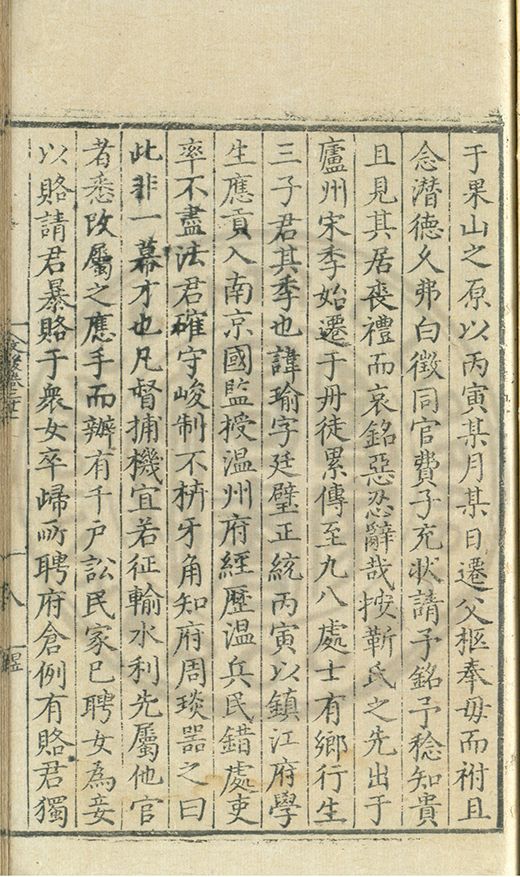 于果山之原以丙寅某月某日遷父柩奉母而祔且
念潛德久弗白徵同官費子充狀請予銘予稔知貴
且見其居喪禮而哀銘惡忍辭哉按靳氏之先出于
廬州宋季始遷于丹徒累傳至九八處士有鄉行生
三子君其季也諱瑜字廷璧正統丙寅以鎮江府學
生應貢入南京國監授温州府經歷温兵民錯處吏
率不盡法君確守峻制不枿牙角知府周琰器之曰
此非一幕才也凡督捕機宜若征輸水利先屬他官
者悉改屬之應手而辦有千戶訟民家已聘女為妾
以賂請君暴賂于衆女卒歸所聘府倉例有賂君獨